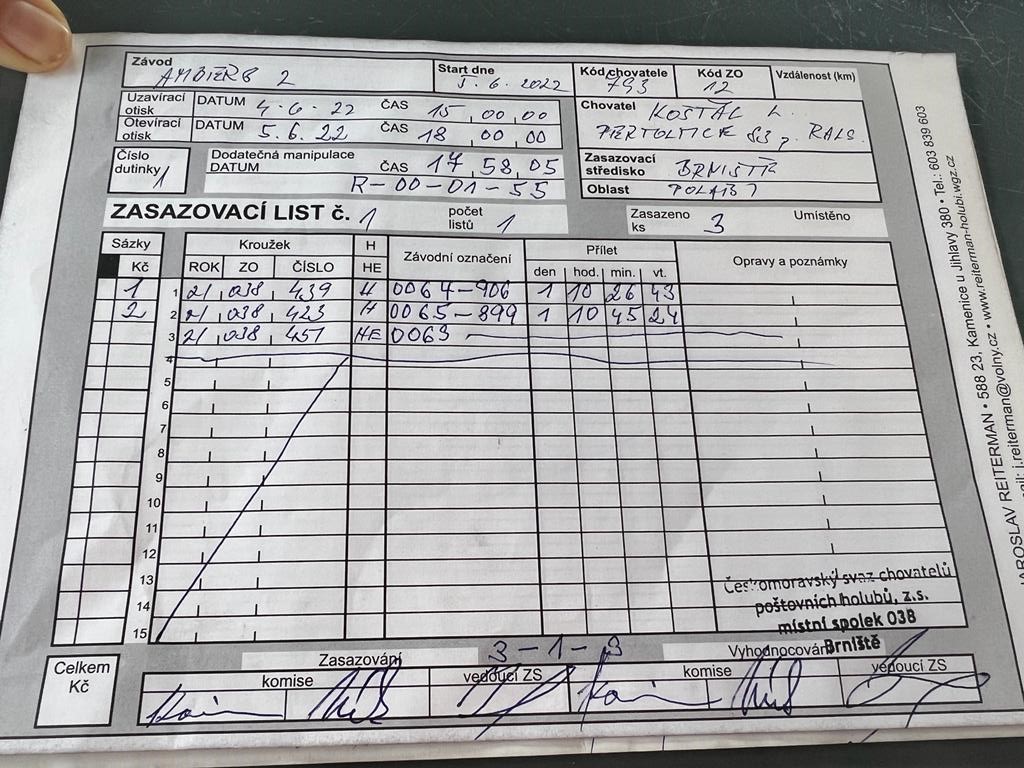 Závod AMBIERG 2 Start dne 5. 6. 2022 Kód chovatele 793 Kód ZO 12 Vzdálenost (km)
Uzavírací otisk DATUM 4-6-22 ČAS 15,00,00
Chovatel KOŠŤÁL L.
Otevírací otisk DATUM 5.6.22 ČAS 18,00,00
83 p. RALS.
Číslo dutinky 1 Dodatečná manipulace DATUM ČAS 17,58,05
R-00-01-55
Zasazovací středisko BRNIŠTĚ
Oblast POLABÍ
ZASAZOVACÍ LIST č. 1 počet listů 1 Zasazeno ks 3 Umístěno
Sázky Kroužek H Závodní označení Přílet Opravy a poznámky
Kč ROK ZO ČÍSLO HE den hod. min. vt.
1 1 21 038 439 H 0064-906 1 10 26 43
2 2 21 038 423 H 0065-899 1 10 45 24
3 21 038 451 HE 0063
4
5
6
7
8
9
10
11
12
13
14
15
Českomoravský svaz chovatelů
poštovních holubů, z.s.
místní spolek 038
Brniště
Celkem Kč
Zasazování 3-1-3 Vyhodnocování
komise vedoucí ZS komise vedoucí ZS
JAROSLAV REITERMAN • 588 23, Kamenice u Jihlavy 380 • Tel.: 603 839 603
j.reiterman@volny.cz • www.reiterman-holubi.wgz.cz